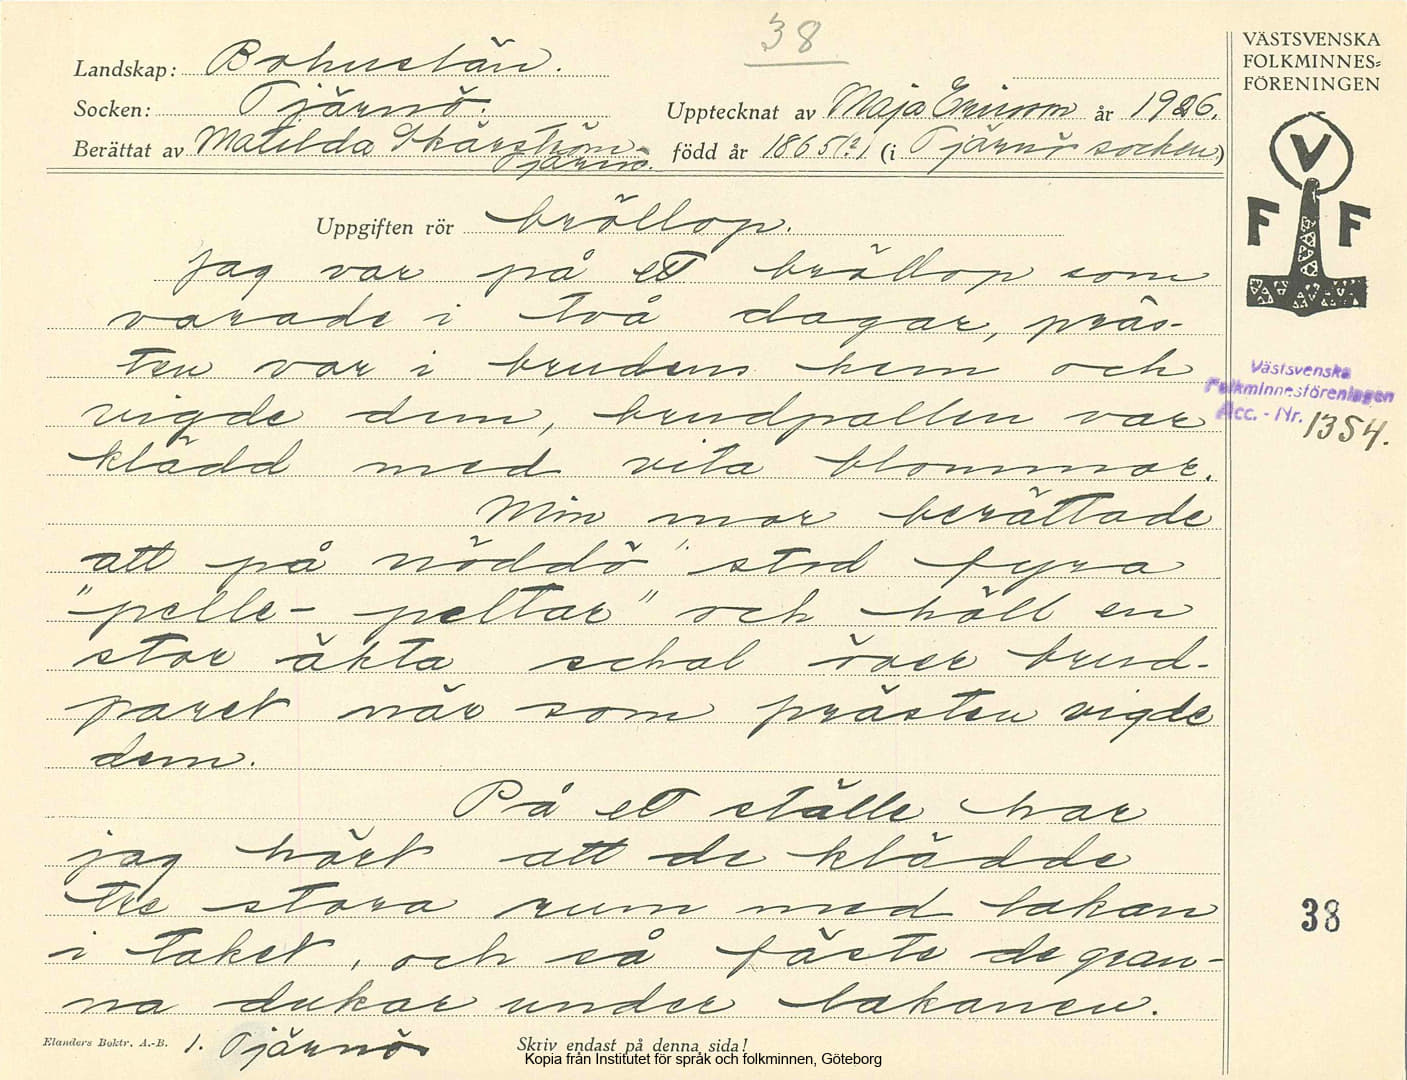 38
VÄSTSVENSKA
FOLKMINNES=
FÖRENINGEN
Landskap: Bohuslän.
Socken: Tjärnö.
Upptecknat av Maja Ericson år 1926.
Berättat av Matilda Skärström
Tjärnö.
född år 1865(?) (i Tjärnö socken)
V
F F
Uppgiften rör bröllop.
Jag var på ett bröllop som
varade i två dagar, präs-
ten var i brudens hem och
vigde dem, brudpallen var
klädd med vita blommor.
Min mor berättade
att på nöddö stod fyra
"pelle- peltar" och höll en
stor äkta schal över brud-
paret när som prästen vigde
dem.
På ett ställe har
jag hört att de klädde
tre stora rum med lakan
i taket, och så fäste de gran-
na dukar under lakanen.
Västsvenska
Folkminnesföreningen
Acc. - Nr. 1354.
38
Elanders Boktr. A.-B.
1. Tjärnö
Skriv endast på denna sida!
Kopia från Institutet för språk och folkminnen, Göteborg